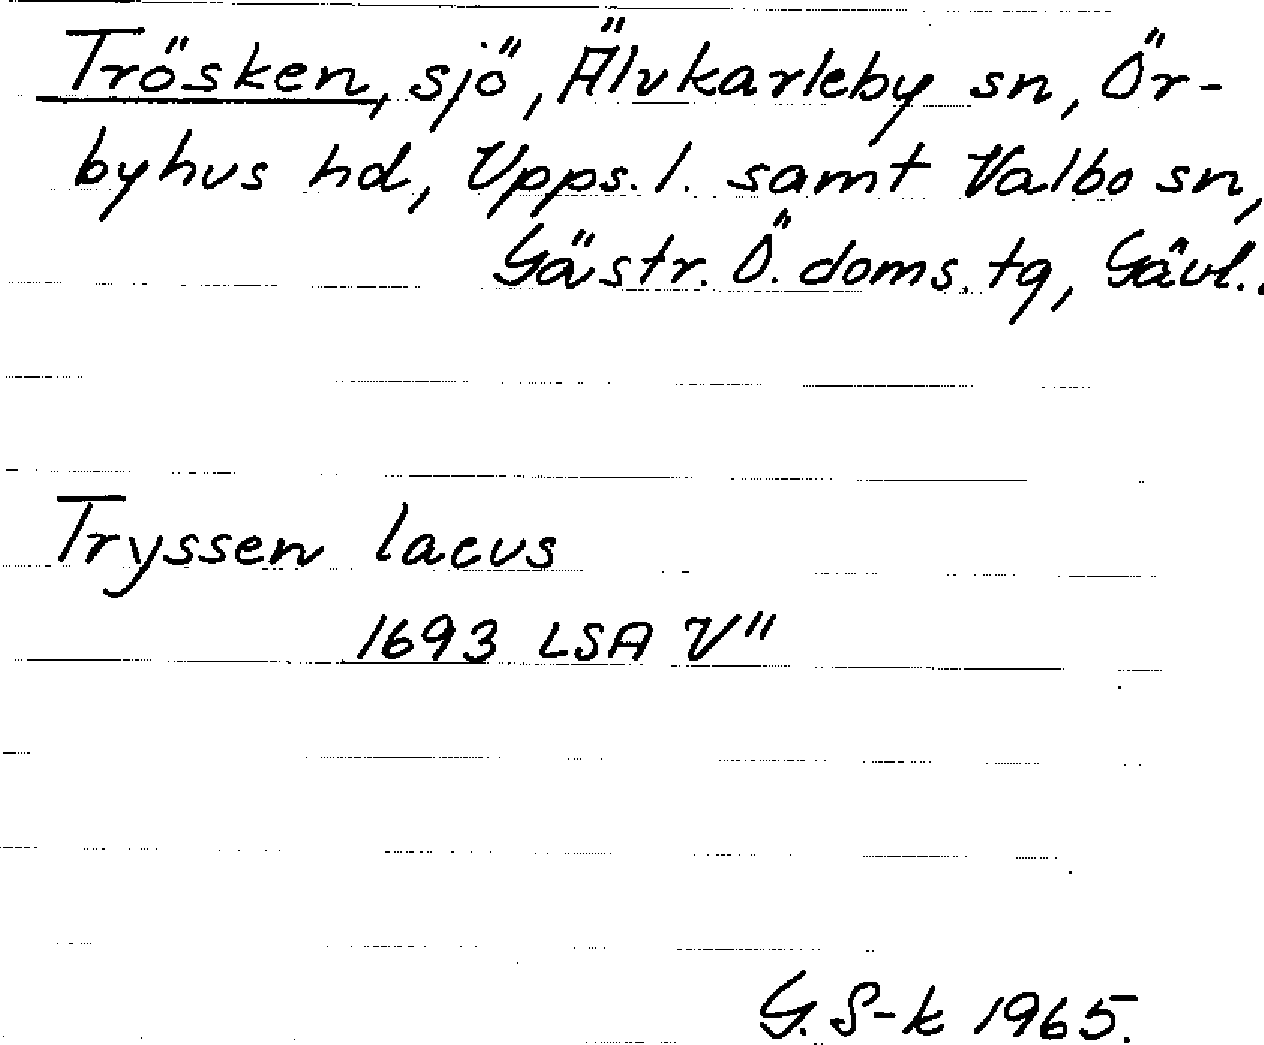 Trösken, sjö, Älvkarleby sn, Ör-
byhus hd, Upps. l. samt Valbo sn,
Gästr. Ö. doms. tg, Gävl..
Tryssen lacus
1693 LSA V"
G. S-k 1965.